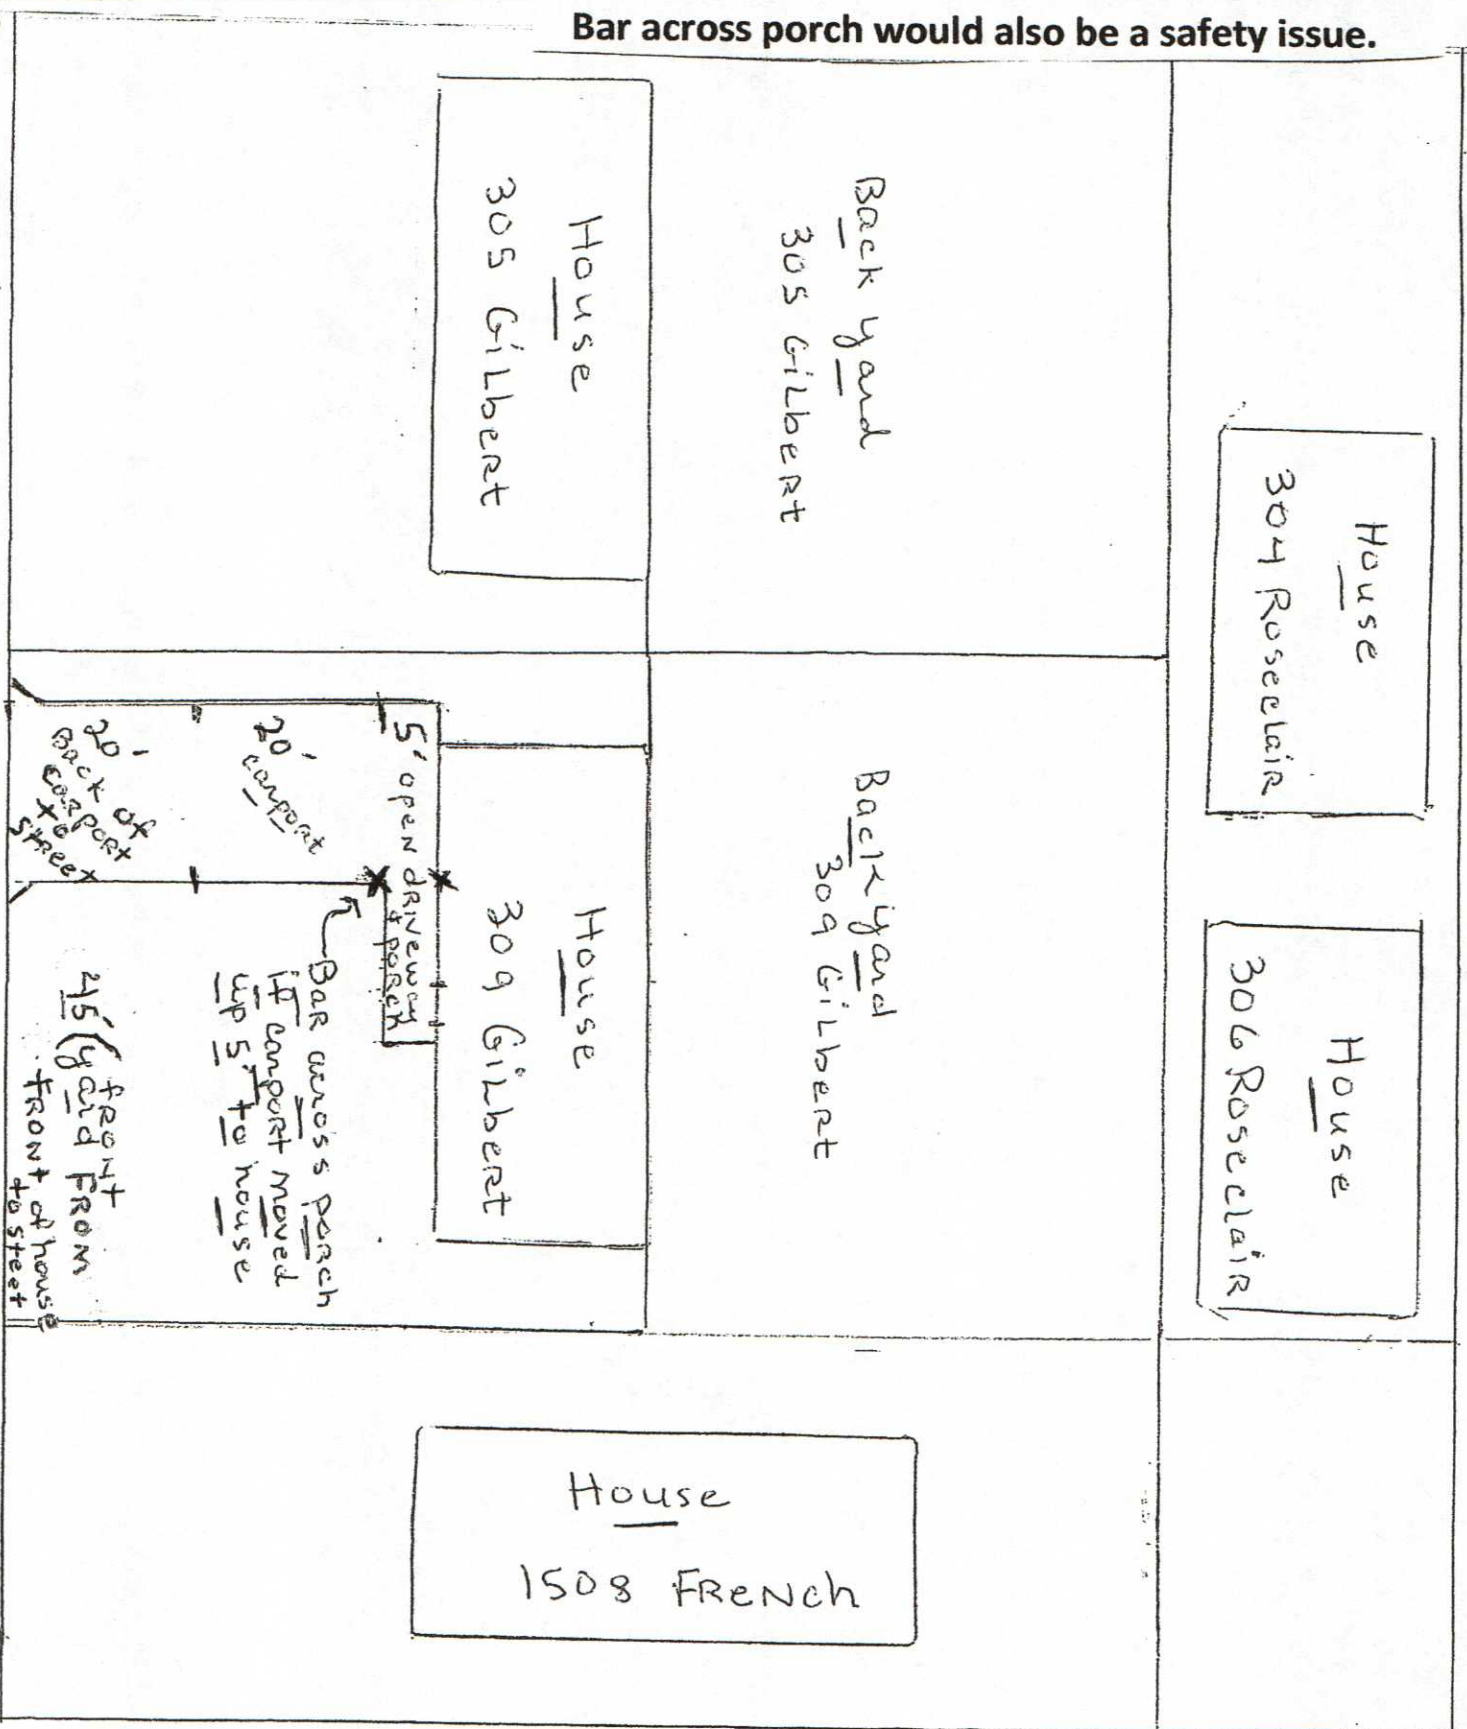 Bar across porch would also be a safety issue.
House
305 GiLbeRt
Back yard
305 GiLbeRt
House
304 RoseclaiR
House
306 RoseclaiR
Back yard
309 GiLbeRt
House
309 GiLbeRt
5' open dRiveway
+ poRch
20'
caRpoRt
20'
Back of
caRpoRt
to
StReet
BaR across poRch
if caRpoRt moved
up 5' to house
45' (fRont
yard FRom
fRont of house
to steet
House
1508 FReNch